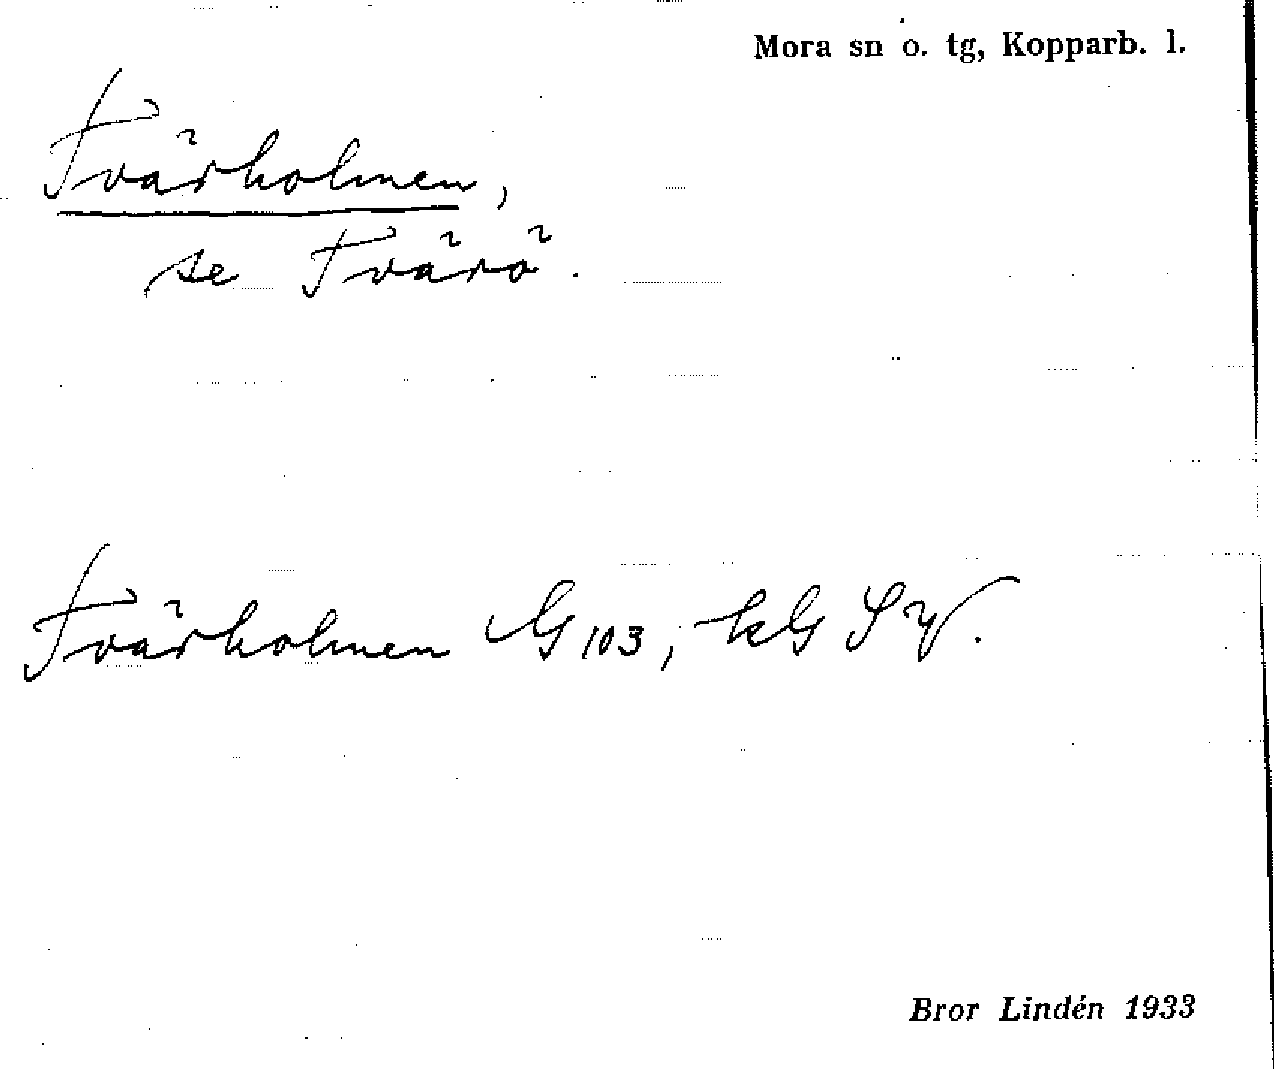 Mora sn o. tg, Kopparb. l.
Tvärholmen,
se Tvärö.
Tvärholmen G 103, kG
Bror Lindén 1933